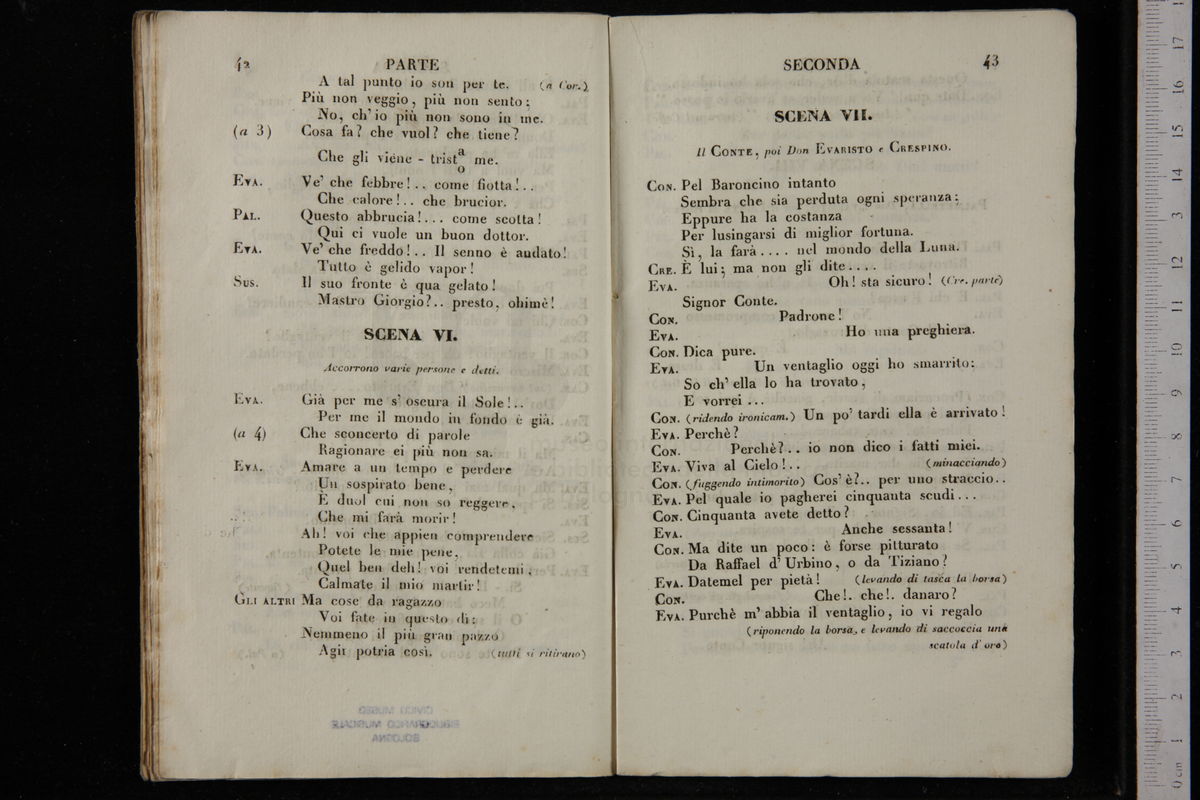 42 PARTE
A tal punto io son per te. (a Cor.)
Più non veggio, più non sento;
No, ch'io più non sono in me.
(a 3) Cosa fa? che vuol? che tiene?
Che gli viene - trista me.
o
EVA. Ve' che febbre!.. come fiotta!..
Che calore!.. che brucior.
PAL. Questo abbrucia!... come scotta!
Qui ci vuole un buon dottor.
EVA. Ve' che freddo!.. Il senno è andato!
Tutto è gelido vapor!
SUS. Il suo fronte è qua gelato!
Mastro Giorgio?.. presto, ohimè!
SCENA VI.
Accorrono varie persone e detti.
EVA. Già per me s'oscura il Sole!..
Per me il mondo in fondo è già.
(a 4) Che sconcerto di parole
Ragionare ei più non sa.
EVA. Amare a un tempo e perdere
Un sospirato bene,
È duol cui non so reggere,
Che mi farà morir!
Ah! voi che appien comprendere
Potete le mie pene,
Quel ben deh! voi rendetemi,
Calmate il mio martir!
GLI ALTRI Ma cose da ragazzo
Voi fate in questo dì:
Nemmeno il più gran pazzo
Agir potria così. (tutti si ritirano)
CIVICO MUSEO
BIBLIOGRAFICO MUSICALE
BOLOGNA
SECONDA 43
SCENA VII.
Il CONTE, poi Don EVARISTO e CRESPINO.
CON. Pel Baroncino intanto
Sembra che sia perduta ogni speranza:
Eppure ha la costanza
Per lusingarsi di miglior fortuna.
Sì, la farà.... nel mondo della Luna.
CRE. È lui; ma non gli dite....
EVA. Oh! sta sicuro! (Cre. parte)
Signor Conte.
CON. Padrone!
EVA. Ho una preghiera.
CON. Dica pure.
EVA. Un ventaglio oggi ho smarrito:
So ch'ella lo ha trovato,
E vorrei...
CON. (ridendo ironicam.) Un po' tardi ella è arrivato!
EVA. Perchè?
CON. Perchè?.. io non dico i fatti miei.
EVA. Viva al Cielo!.. (minacciando)
CON. (fuggendo intimorito) Cos'è?.. per uno straccio..
EVA. Pel quale io pagherei cinquanta scudi...
CON. Cinquanta avete detto?
EVA. Anche sessanta!
CON. Ma dite un poco: è forse pitturato
Da Raffael d'Urbino, o da Tiziano?
EVA. Datemel per pietà! (levando di tasca la borsa)
CON. Che!. che!. danaro?
EVA. Purchè m'abbia il ventaglio, io vi regalo
(riponendo la borsa, e levando di saccoccia una
scatola d'oro)
0 cm 1 2 3 4 5 6 7 8 9 10 11 12 13 14 15 16 17